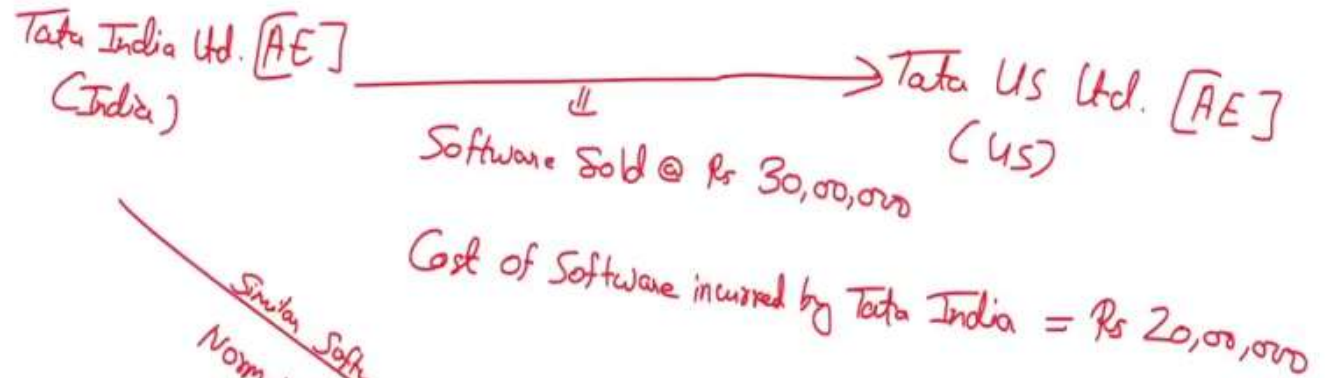 Tata India Ltd. [AE]
(India)
Tata US Ltd. [AE]
(US)
Software Sold @ Rs 30,00,000
Cost of Software incurred by Tata India = Rs 20,00,000
Similar